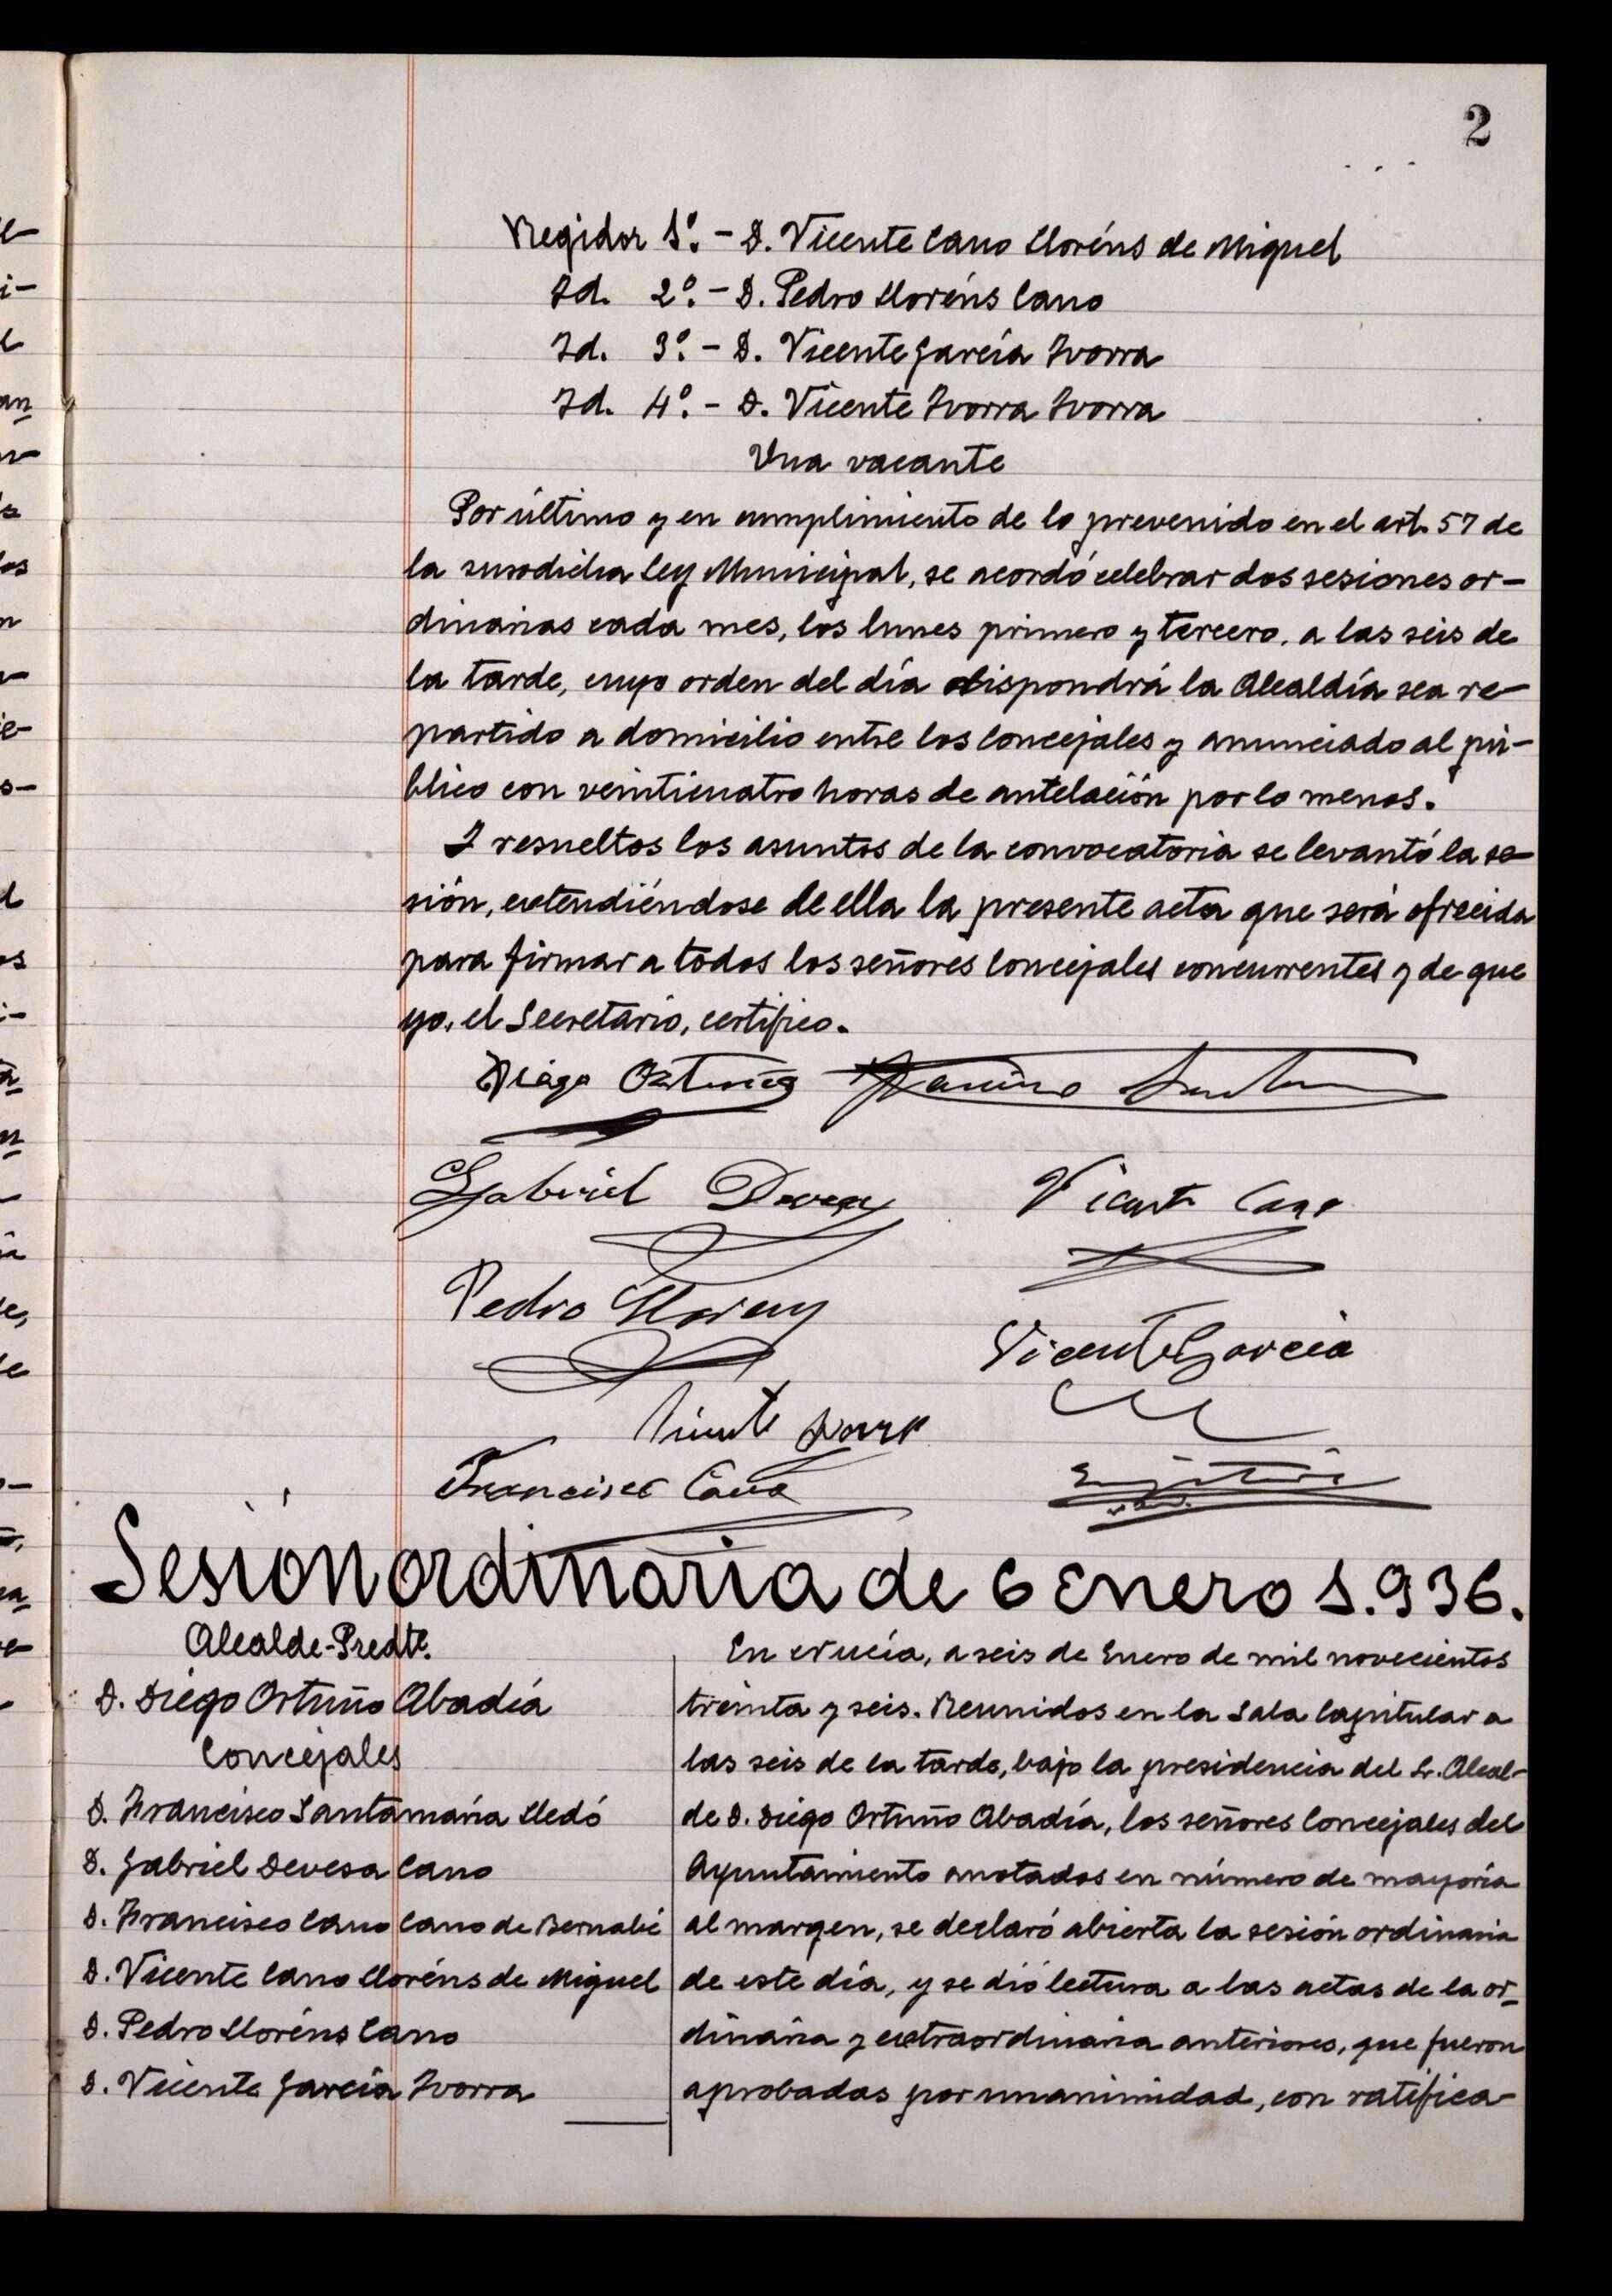 2
Regidor 1º.- D. Vicente Cano Lloréns de Miguel
Id. 2º.- D. Pedro Lloréns Cano
Id. 3º.- D. Vicente García Ivorra
Id. 4º.- D. Vicente Ivorra Ivorra
Una vacante
Por último y en cumplimiento de lo prevenido en el art. 57 de
la susodicha Ley Municipal, se acordó celebrar dos sesiones or-
dinarias cada mes, los lunes primero y tercero, a las seis de
la tarde, cuyo orden del día dispondrá la Alcaldía sea re-
partido a domicilio entre los Concejales y anunciado al pú-
blico con veinticuatro horas de antelación por lo menos.
I resueltos los asuntos de la convocatoria se levantó la se-
sión, extendiéndose de ella la presente acta que será ofrecida
para firmar a todos los señores Concejales concurrentes y de que
yo, el Secretario, certifico.
Diego Ortuño
Gabriel Devesa Vicente Cano
Pedro Llorens
Vicente García
Vicente Ivorra
Francisco Cano
Sesión ordinaria de 6 Enero 1.936.
Alcalde-Predte.
D. Diego Ortuño Abadía
Concejales
D. Francisco Santamaría Lledó
D. Gabriel Devesa Cano
D. Francisco Cano Cano de Bernabé
D. Vicente Cano Lloréns de Miguel
D. Pedro Lloréns Cano
D. Vicente García Ivorra
En Nucía, a seis de Enero de mil novecientos
treinta y seis. Reunidos en la Sala Capitular a
las seis de la tarde, bajo la presidencia del Sr. Alcal-
de D. Diego Ortuño Abadía, los señores Concejales del
Ayuntamiento anotados en número de mayoría
al margen, se declaró abierta la sesión ordinaria
de este día, y se dió lectura a las actas de la or-
dinaria y extraordinaria anteriores, que fueron
aprobadas por unanimidad, con ratifica-